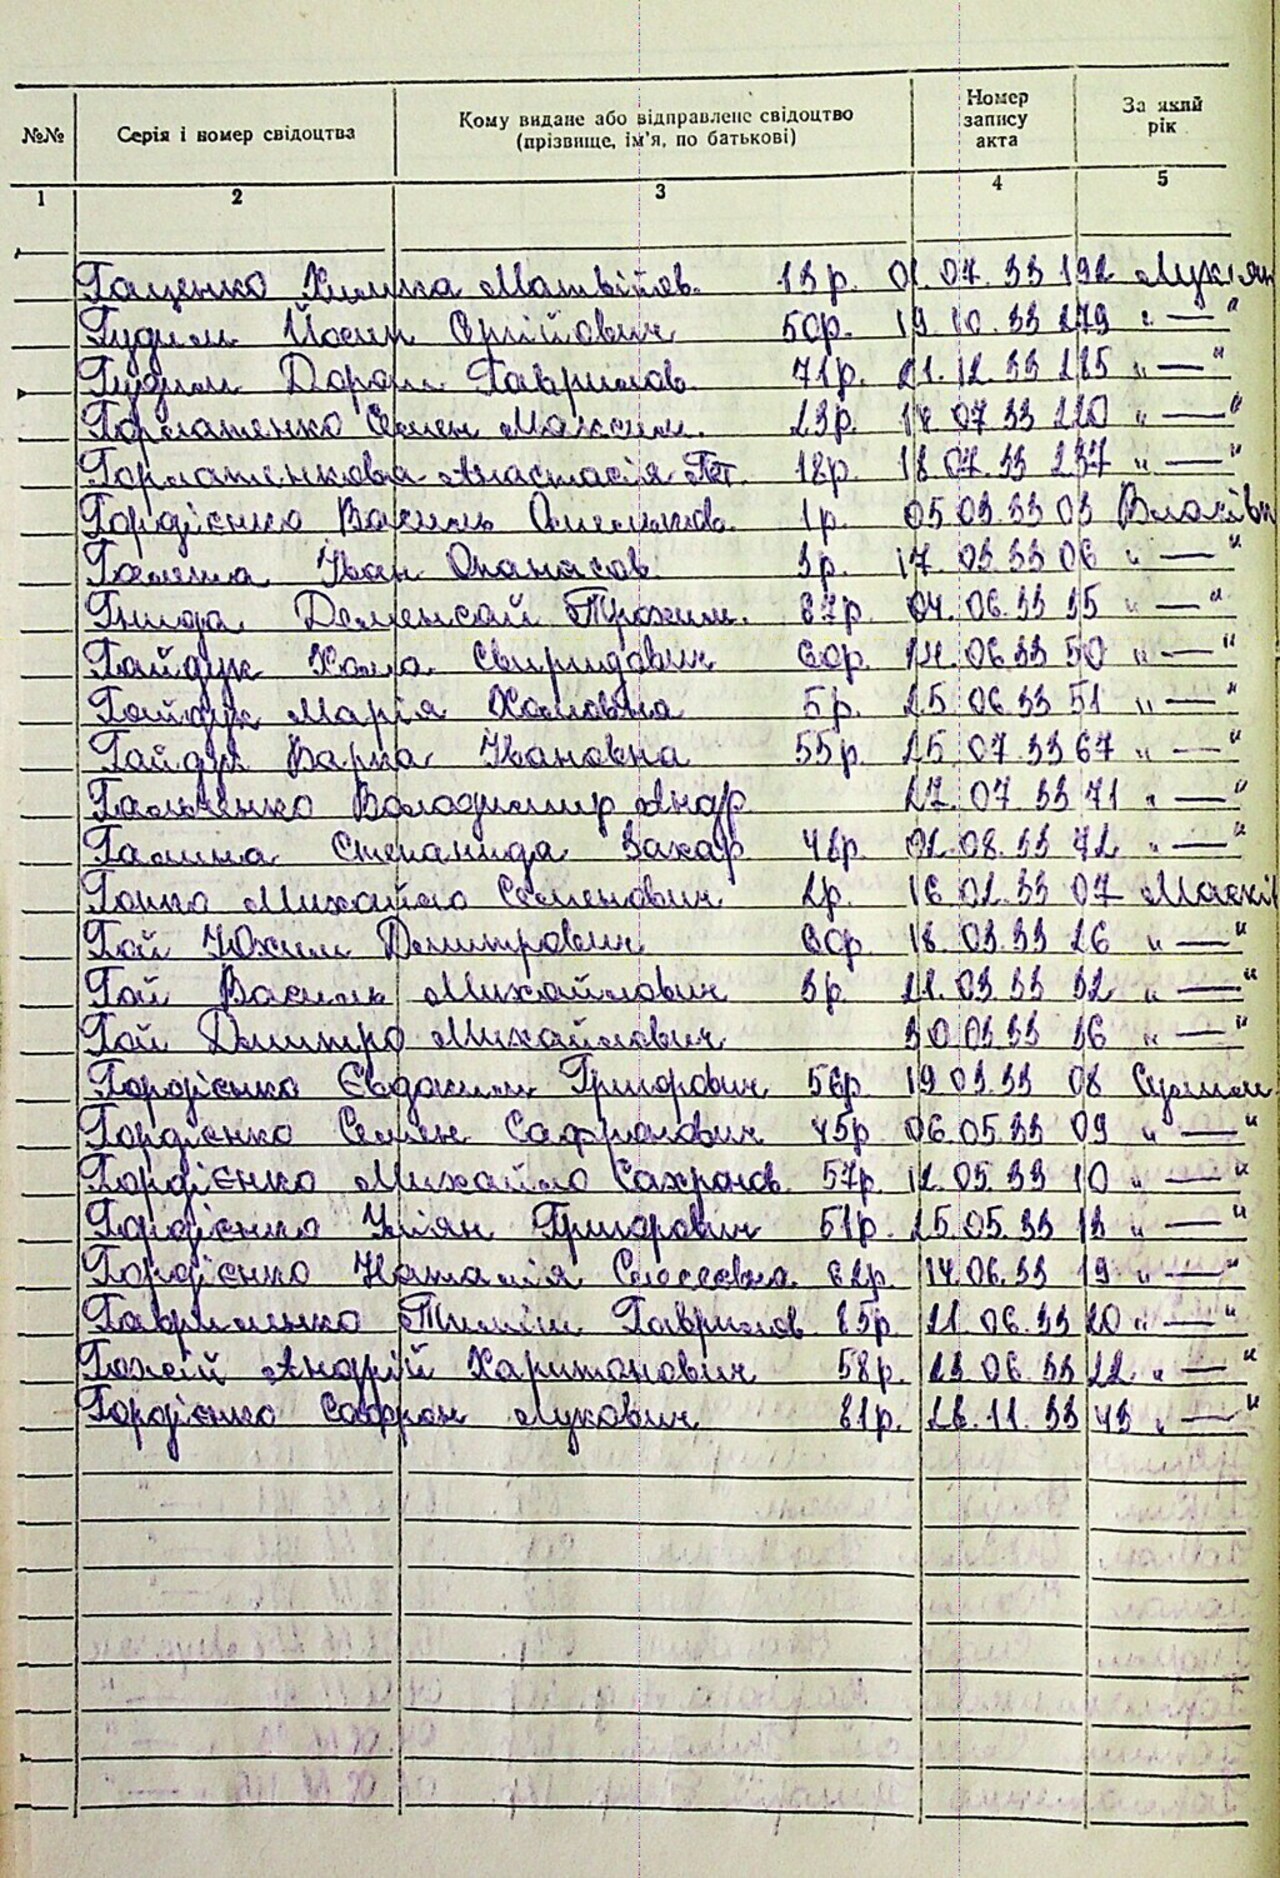 №№ Серія і номер свідоцтва Кому видане або відправлене свідоцтво (прізвище, ім'я, по батькові) Номер запису акта За який рік
1 2 3 4 5
Гаценко Химка Матвійов. 13р. 07.33 192
Гудим Йосип Сергійович 50р. 19.10.33 279 „—"
Гудим Гаврилов. 71р. 21.12.33 285 „—"
Горпатенко Семен Максим. 23р. 07 33 220 „—"
Горпатенкова Анастасія Пет. 18р. 18.07.33 237 „—"
Гордієнко Василь 1р. 05 03.33 03 Власівк
Галета Іван Опанасов. 3р. 17.03.33 06 „—"
Гнида Трохим. 67р. 04.06.33 35 „—"
Гайдук Хома Свиридович 60р. 14.06.33 50 „—"
Гайдук Марія Хомовна 5р. 25.06.33 51 „—"
Гайдук Варка Івановна 55р. 25.07.33 67 „—"
Гальченко Володимир Андр. 27.07.33 71 „—"
Галина Степанида Захар. 48р. 02.08.33 72 „—"
Михайло Семенович 2р. 16 02.33 07
Гай Юхим Дмитрович 60р. 18.03.33 26 „—"
Гай Василь Михайлович 3р. 21.03.33 32 „—"
Гай Дмитро Михайлович 30 03.33 36 „—"
Гордієнко Євдоким Григорович 56р. 19 03.33 08
Гордієнко Семен Сафронович 45р. 06.05.33 09 „—"
Гордієнко Михайло Сахронов. 57р. 12.05.33 10 „—"
Гордієнко Улян Григорович 51р. 25.05.33 13 „—"
Гордієнко Наталія 62р. 14.06.33 19 „—"
Гавриленко Тиміш Гаврилов 65р. 21.06.33 20 „—"
Андрій Харитонович 58р. 23.06.33 22 „—"
Гордієнко Сафрон Лукович 81р. 26.11.33 43 „—"